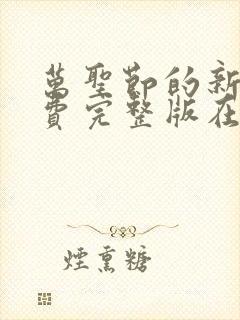 萬聖節的新
費完整版在
煙熏糖